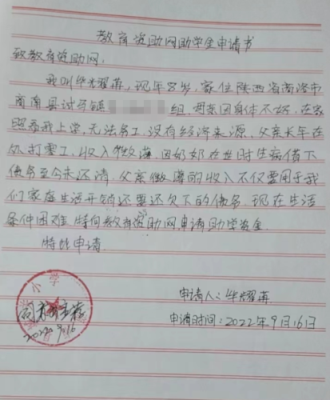 教育资助网助学金申请书
致教育资助网:
我叫 耀苒,现年8岁,家住陕西省商洛市
商南县试马镇 组,母亲因身体不好,在家
照看我上学,无法务工,没有经济来源,父亲长年在
外打零工,收入微薄,因奶奶在世时生病借下
债务至今未还清,父亲微薄的收入不仅要用于我
们家庭生活开始还要还欠下的债务,现在生活
条件困难,特向教育资助网申请助学资金.
特此申请
小学
同意
2022.9.16
申请人: 耀苒
申请时间:2022年9月16日